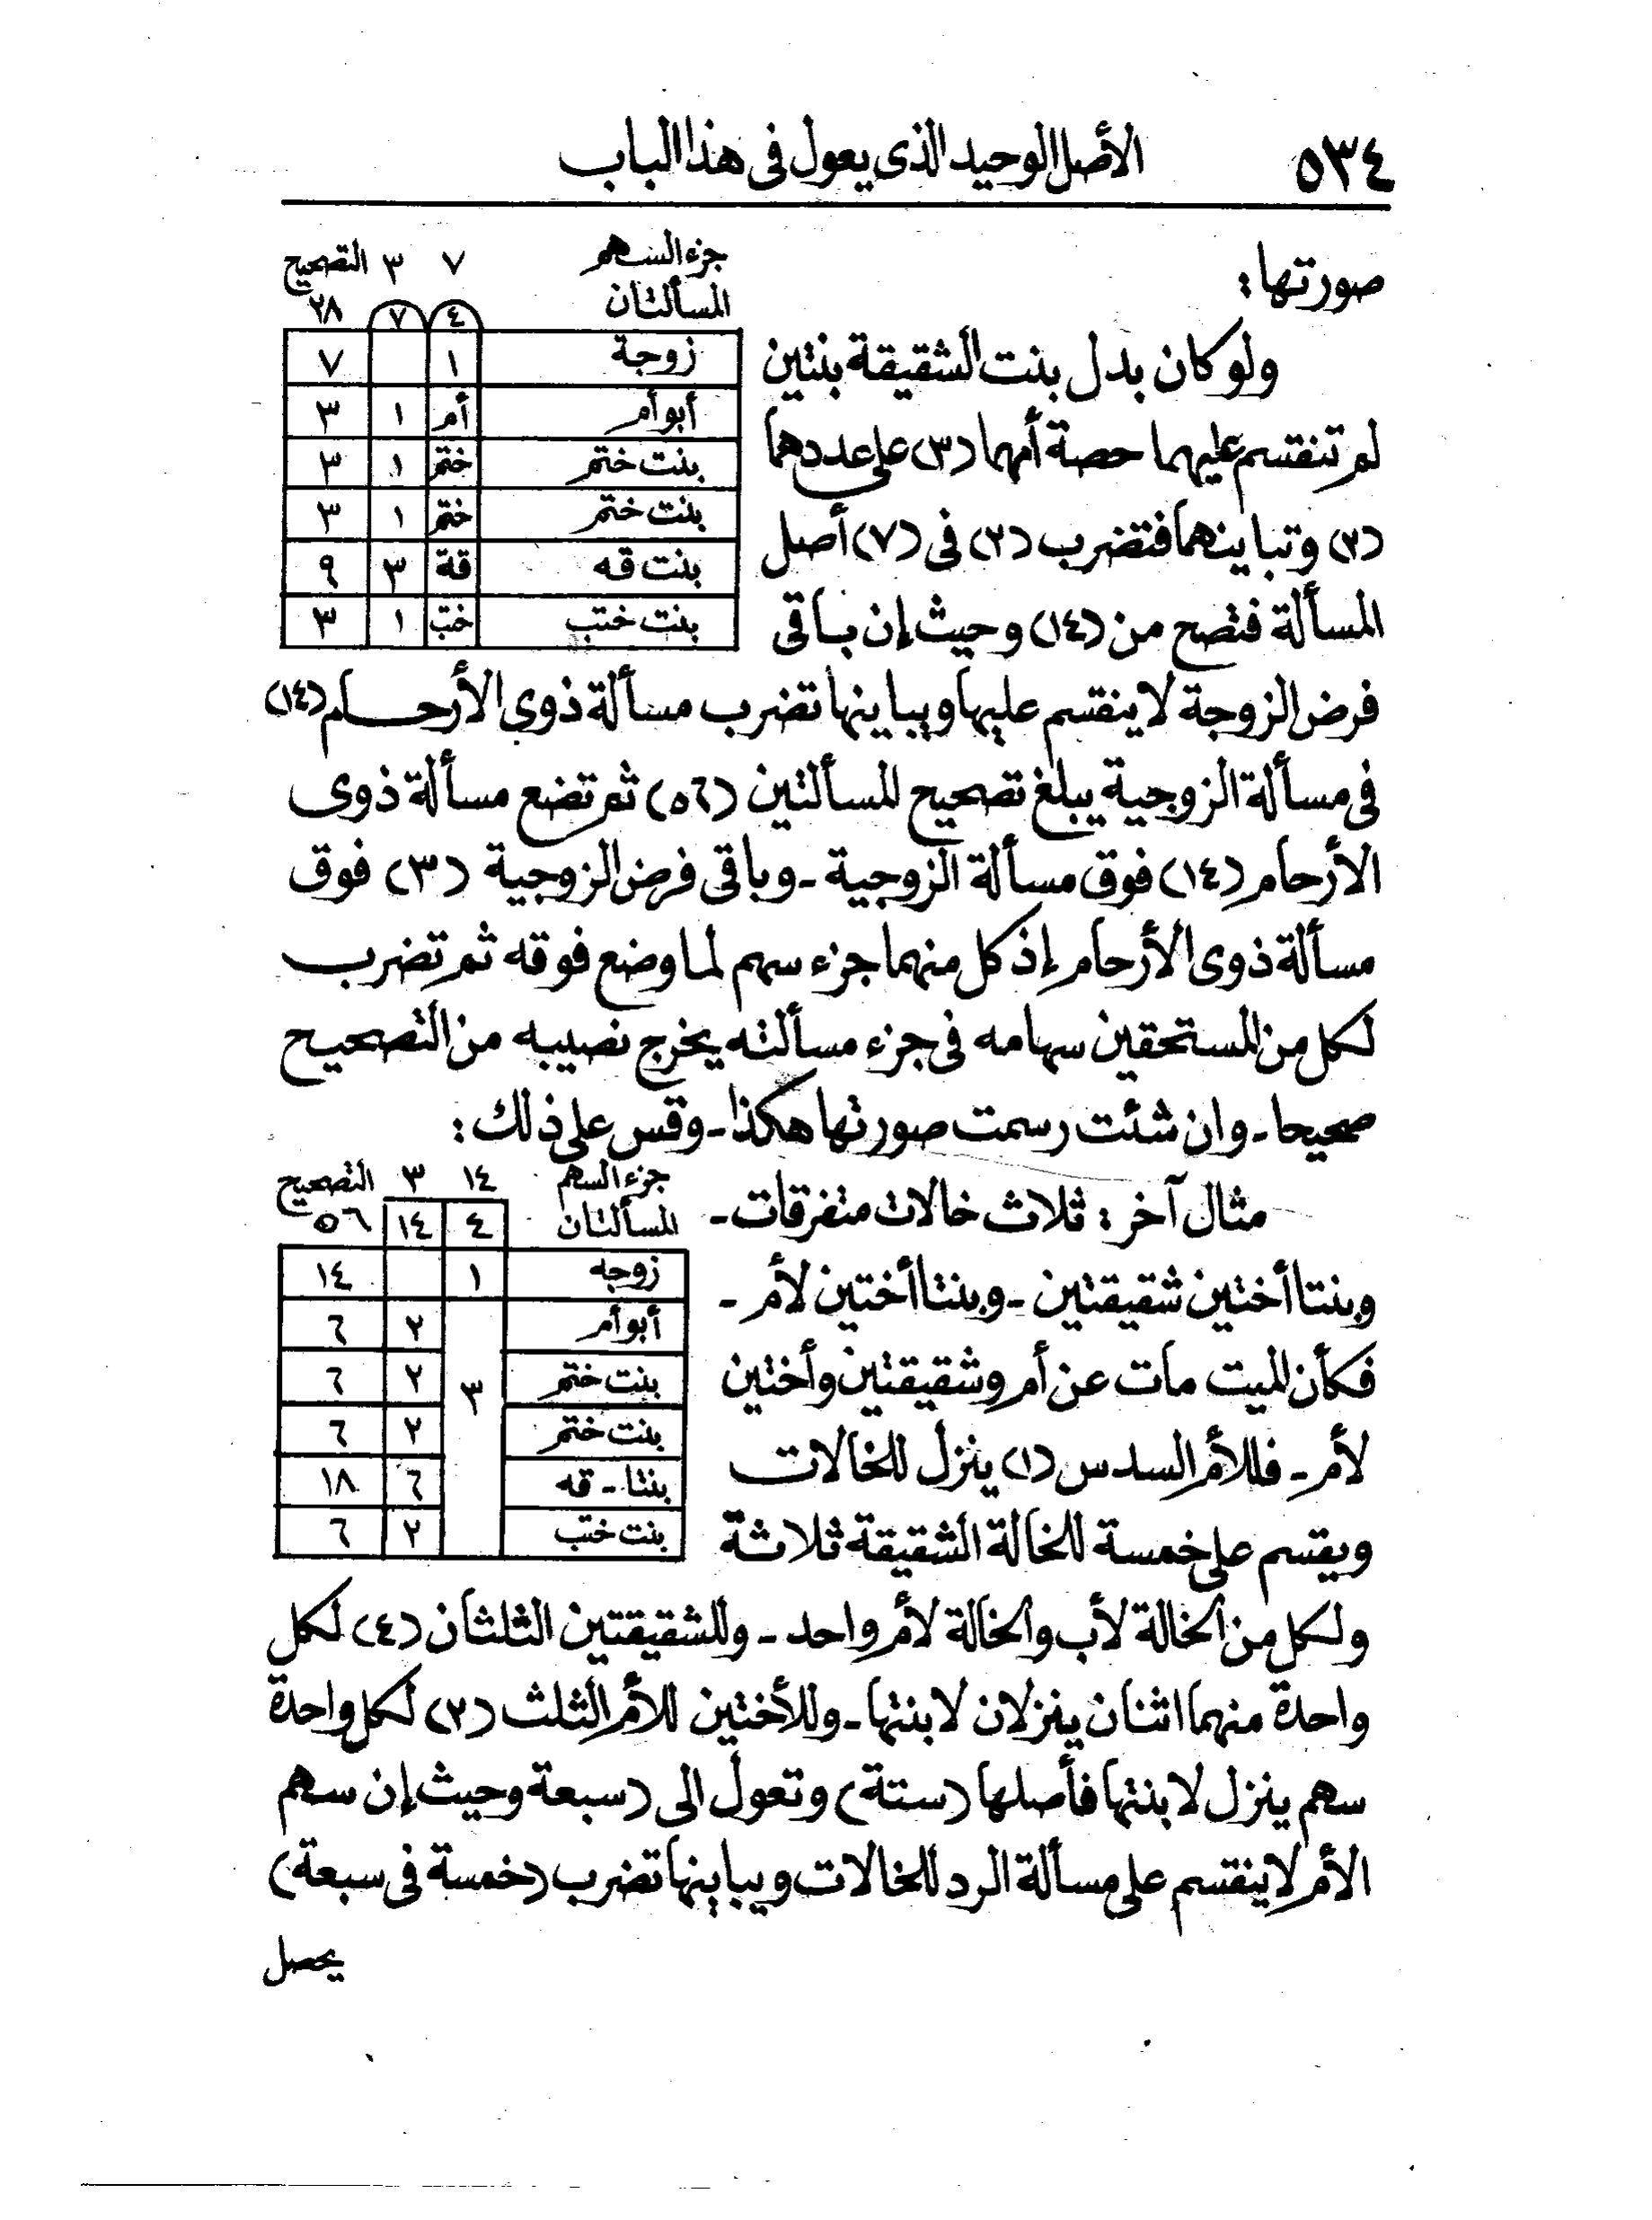 ٥٣٤ الأصل الوحيد الذى يعول فى هذا الباب
صورتها:
جزء السهم ٧ ٣ التصحيح
المسألتان ٤ ٧ ٢٨
زوجة ١ ٧
أبو أم أم ١ ٣
بنت ختم ختم ١ ٣
بنت ختم ختم ١ ٣
بنت قه قة ٣ ٩
بنت ختب ختب ١ ٣
ولو كان بدل بنت الشقيقة بنتين
لم تنقسم عليهما حصة أمهما (٣) على عددهما
(٢) وتباينهما فتضرب (٢) فى (٧) أصل
المسألة فتصح من (١٤) وحيث إن باقى
فرض الزوجة لا ينقسم عليها ويباينها تضرب مسألة ذوى الأرحام (١٤)
فى مسألة الزوجية يبلغ تصحيح المسألتين (٥٦) ثم تضع مسألة ذوى
الأرحام (١٤) فوق مسألة الزوجية - وباقى فرض الزوجية (٣) فوق
مسألة ذوى الأرحام إذ كل منهما جزء سهم لما وضع فوقه ثم تضرب
لكل من المستحقين سهامه فى جزء مسألته يخرج نصيبه من التصحيح
صحيحا - وان شئت رسمت صورتها هكذا - وقس على ذلك:
جزء السهم ١٤ ٣ التصحيح
المسألتان ٤ ١٤ ٥٦
زوجه ١ ١٤
أبو أم ٣ ٢ ٦
بنت ختم ٢ ٦
بنت ختم ٢ ٦
بنتا - قه ٦ ١٨
بنت ختب ٢ ٦
مثال آخر: ثلاث خالات متفرقات -
وبنتا أختين شقيقتين - وبنتا أختين لأم -
فكأن الميت مات عن أم وشقيقتين وأختين
لأم - فللأم السدس (١) ينزل للخالات
ويقسم على خمسة للخالة الشقيقة ثلاثة
ولكل من الخالة لأب والخالة لأم واحد - وللشقيقتين الثلثان (٤) لكل
واحدة منهما اثنان ينزلان لابنتها - وللأختين للأم الثلث (٢) لكل واحدة
سهم ينزل لابنتها فأصلها (ستة) وتعول الى (سبعة وحيث إن سهم
الأم لا ينقسم على مسألة الرد للخالات ويباينها تضرب (خمسة فى سبعة)
يحصل